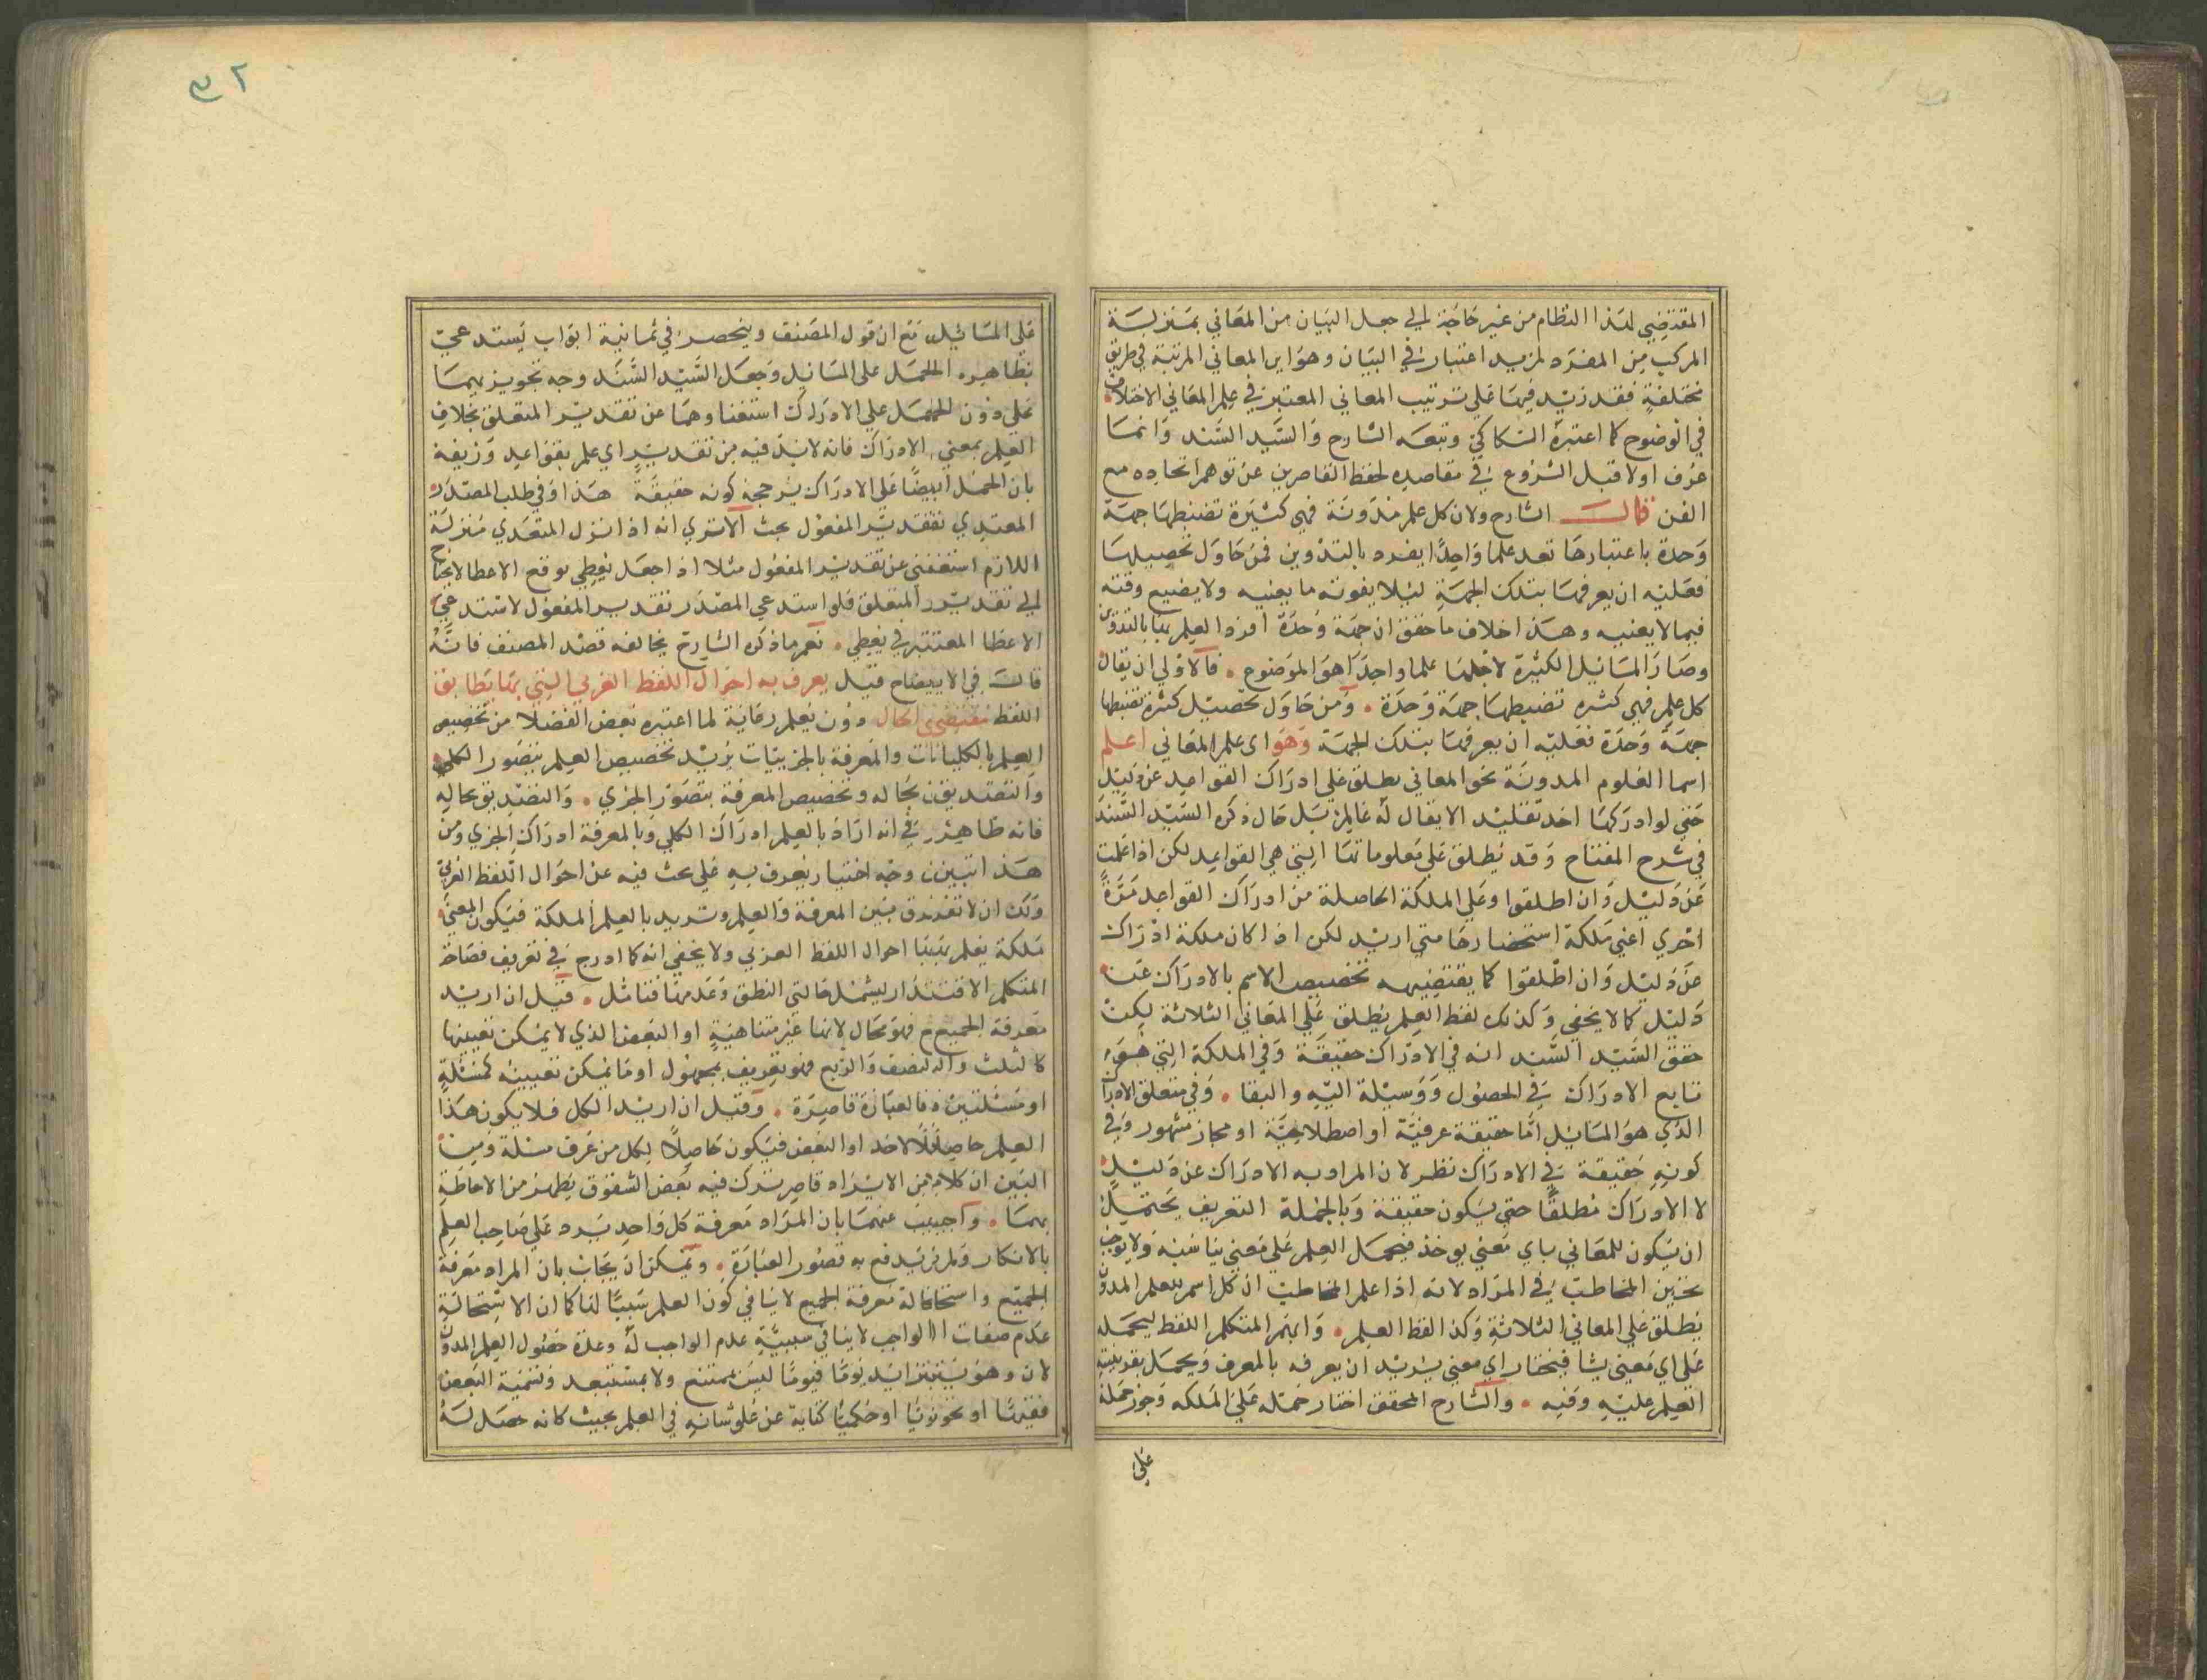 المقتضي لهذا النظام من غير حاجة الى جعل البيان من المعاني بمنزلة
المركب من المفرد لمزيد اعتبار في البيان وهو ايراد المعاني المرتبة في طريق
مختلفة فقد زيد فيها على ترتيب المعاني المعتبر في علم المعاني الاختلاف
في الوضوح كما اعتبره السكاكي وتبعه الشارح والسيد السند وانما
عرف اولا قبل الشروع في مقاصده لحفظ القاصرين عن توهم اتحاده مع
الفن قال الشارح ولان كل علم مدونة فهي كثيرة تضبطها جهة
وحدة باعتبارها تعد علما واحدا يفرد بالتدوين فمن حاول تحصيلها
فعليه ان يعرفها بتلك الجهة ليلا يفوته ما يعنيه ولا يضيع وقته
فيما لا يعنيه وهذا خلاف ما حقق ان جهة وحدة افرد العلم بها بالتدوين
وصار المسائل الكثيرة لاجلها علما واحدا هو الموضوع فالاولى ان يقال
كل علم فهي كثرة تضبطها جهة وحدة ومن حاول تحصيل كثرة تضبطها
جهة وحدة فعليه ان يعرفها بتلك الجهة وهو اى علم المعاني اعلم
اسما العلوم المدونة نحو المعاني يطلق على ادراك القواعد عن دليل
حتى لو ادركها احد تقليدا لا يقال له عالم بل حال ذكره السيد السند
في شرح المفتاح وقد يطلق على معلوماتها التي هي القواعد لكن اذا علمت
عن دليل وان اطلقوا وعلى الملكة الحاصلة من ادراك القواعد مرة
اخرى اعني ملكة استحضارها متى اريد لكن اذا كان ملكة ادراك
عن دليل وان اطلقوا كما يقتضيه تخصيص الاسم بالادراك عن
دليل كما لا يخفى وكذلك لفظ العلم يطلق على المعاني الثلاثة لكن
حقق السيد السند انه في الادراك حقيقة وفي الملكة التي هي
تابع الادراك في الحصول ووسيلة اليه والبقا وفي متعلق الادراك
الذي هو المسائل اما حقيقة عرفية او اصطلاحية او مجاز مشهور وفي
كونه حقيقة في الادراك نظر لان المراد به الادراك عن دليل
لا الادراك مطلقا حتى يكون حقيقة وبالجملة التعريف يحتمل
ان يكون للمعاني باي معنى يوخذ فيحمل العلم على معنى يناسبه ولا يوجب
تحيز المخاطب في المراد لانه اذا علم المخاطب ان كل اسم للعلم المدون
يطلق على المعاني الثلاثة وكذا لفظ العلم وابهم المتكلم اللفظ ليحمله
على اي معنى يشا فيختار اي معنى يريد ان يعرفه بالمعرف ويحمل بقرينة
العلم عليه وفيه والشارح المحقق اختار حمله على الملكه وجوز حمله
على
على المسائل مع ان قول المصنف وينحصر في ثمانية ابواب يستدعي
بظاهره الحمل على المسائل وجعل السيد السند وجه تجويزيهما
على دون الحمل على الادراك استغناوهما عن تقدير المتعلق بخلاف
العلم بمعنى الادراك فانه لابد فيه من تقديره اي علم بقواعد وزيفه
بان الحمل ايضا على الادراك يرجحه كونه حقيقة هذا وفي طلب المصدر
المعتدي تقدير المفعول بحث الا ترى انه اذا نزل المتعدي منزلة
اللازم استغنى عن تقدير المفعول مثلا اذا جعل يعطي يوقع الاعطا لا يحتاج
الى تقدير المتعلق فلو استدعي المصدر تقدير المفعول لاستدعى
الاعطا المعتبر في يعطي نعم ما ذكره الشارح يخالفه قصد المصنف فانه
قال في الايضاح قيل يعرف به احوال اللفظ العربي التي بها يطابق
اللفظ مقتضى الحال دون يعلم رعاية لما اعتبره بعض الفضلا من تخصيص
العلم بالكليات والمعرفة بالجزييات يريد تخصيص العلم بتصور الكلي
والتصديق بحاله وتخصيص المعرفة بتصور الجزي والتصديق بحاله
فانه ظاهر في انه اراد بالعلم ادراك الكلي وبالمعرفة ادراك الجزي ومن
هذا تبين وجه اختيار يعرف به على بحث فيه عن احوال اللفظ العربي
ولك ان لا تفرق بين المعرفة والعلم وتريد بالعلم الملكة فيكون المعنى
ملكة يعلم بها احوال اللفظ العربي ولا يخفى انه كما ادرج في تعريف فصاحة
المتكلم الاقتدار ليشمل حالتي النطق وعدمها فتامل قيل ان اريد
معرفة الجميع فهو محال لانها غير متناهية او البعض الذي لا يمكن تعيينها
كالثلث والنصف والربع فهو تعريف بمجهول او ما يمكن تعيينه كمسئلة
او مسئلتين فالعبارة قاصرة وقيل ان اريد الكل فلا يكون هذا
العلم حاصلا لاحد او البعض فيكون حاصلا لكل من عرف مسئلة ومن
البين ان كلا من الايراد قاصر ترك فيه بعض الشقوق يظهر من الاحاطة
بهما واجيب عنهما بان المراد معرفة كل واحد يرد على صاحب العلم
بالانكار ولم يندفع به قصور العبارة ويمكن ان يجاب بان المراد معرفة
الجميع واستحالة معرفة الجميع لا ينافي كون العلم سببا لها كما ان الاستحالة
عدم صفات الواجب لا ينافي سببية عدم الواجب له وعدة حصول العلم المدون
لان وهو يتزايد يوما فيوما ليس بممتنع ولا بمستبعد وتسمية البعض
فقيها او نحويا او حكيما كناية عن علو شانه في العلم بحيث كانه حصل له